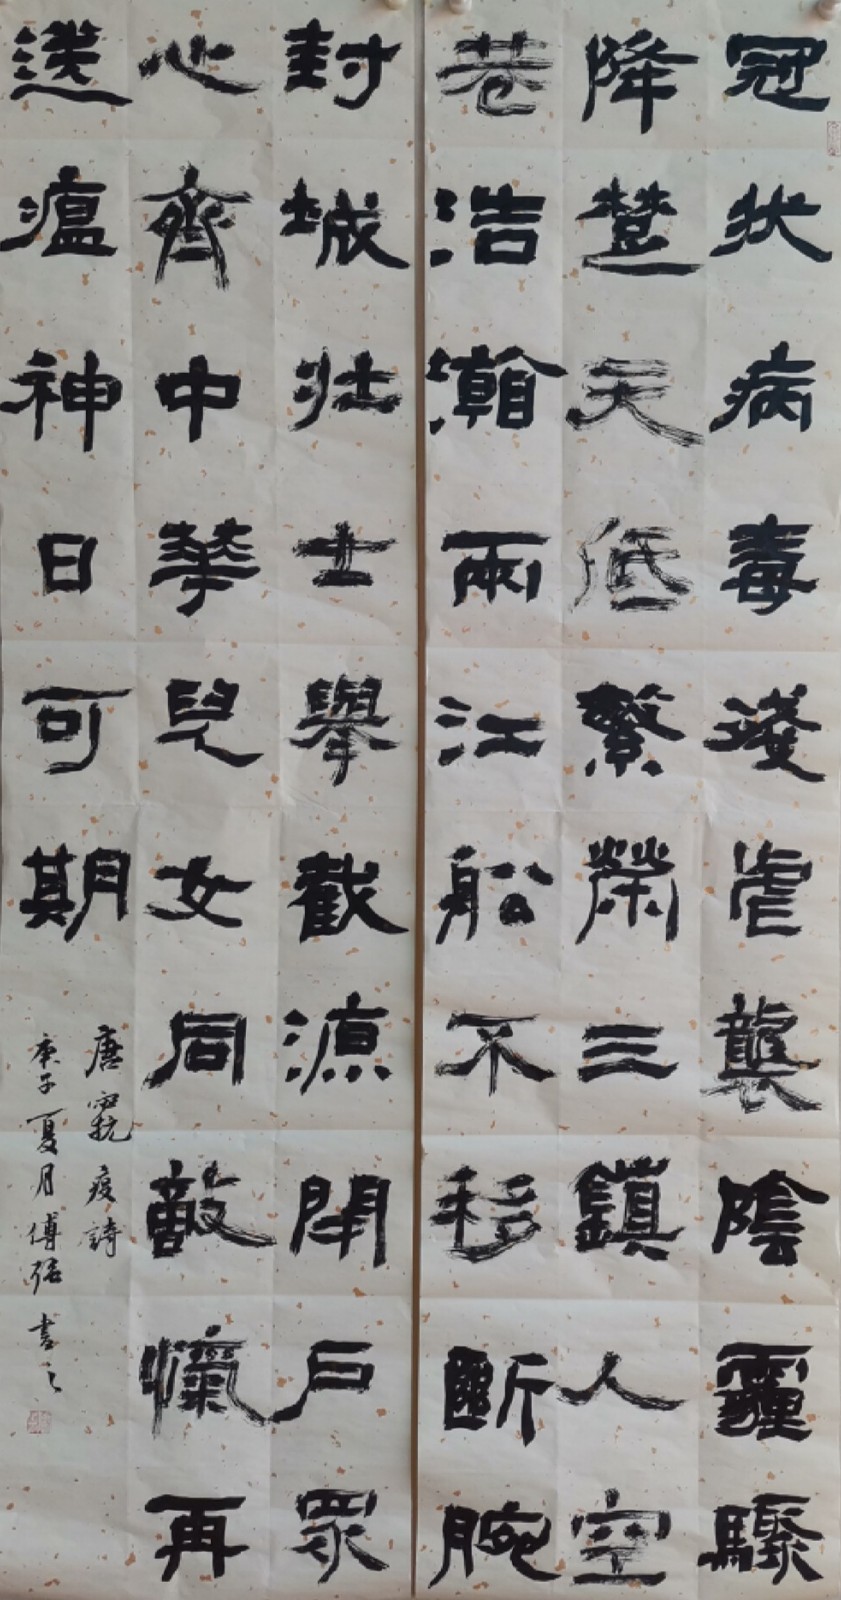 冠状病毒殘虐襲陰霾驟
降楚天低繁榮三鎮人空
巷浩瀚兩江船不移斷腕
封城壮士舉截源閉戶眾
心齊中華兒女同敵愾再
送瘟神日可期
唐 抗疫詩
庚子夏月傅 書之